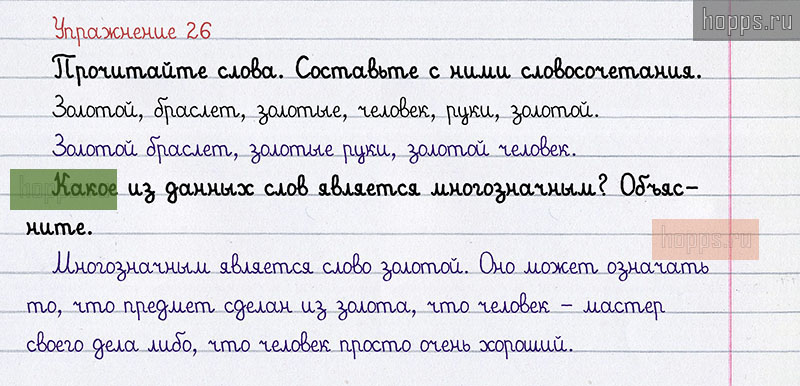 hopps.ru
Упражнение 26
Прочитайте слова. Составьте с ними словосочетания.
Золотой, браслет, золотые, человек, руки, золотой.
Золотой браслет, золотые руки, золотой человек.
hopps.ru
Какое из данных слов является многозначным? Объяс-
ните.
hopps.ru
Многозначным является слово золотой. Оно может означать
то, что предмет сделан из золота, что человек – мастер
своего дела либо, что человек просто очень хороший.